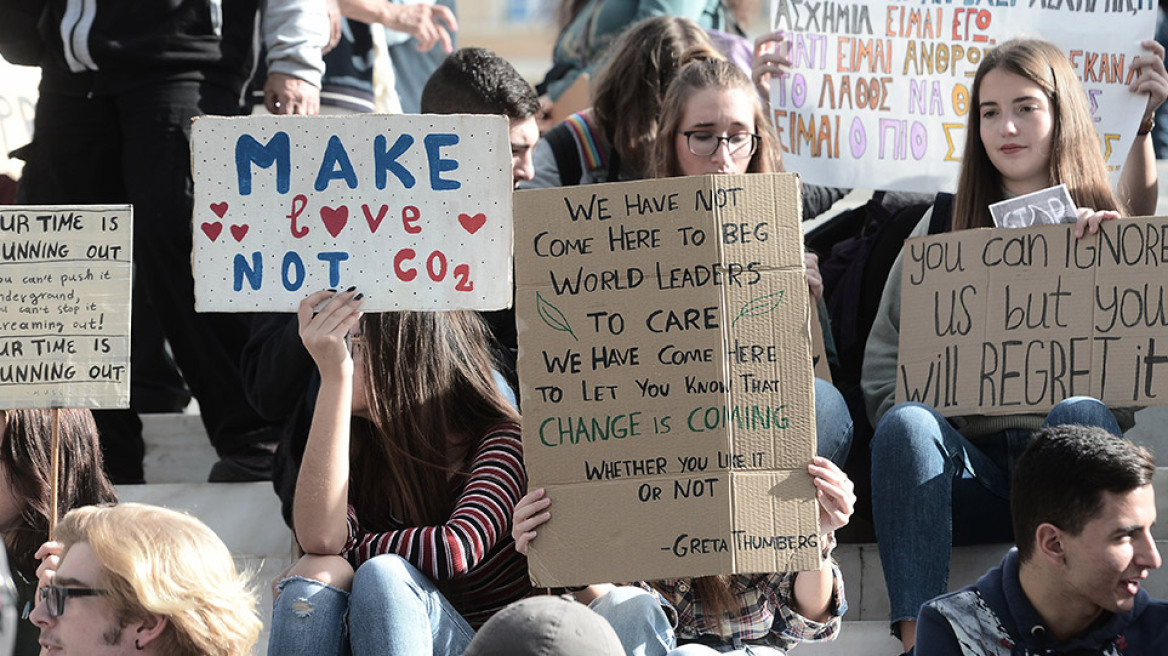 UR TIME IS
UNNING OUT
ou can't push it
nderground,
ou can't stop it
creaming out!
UR TIME IS
UNNING OUT
MAKE
love
NOT CO2
WE HAVE NOT
COME HERE TO BEG
WORLD LEADERS
TO CARE
WE HAVE COME HERE
TO LET YOU KNOW THAT
CHANGE IS COMING
WHETHER YOU LIKE IT
OR NOT
-GRETA THUMBERG
ΑΣΧΗΜΙΑ ΕΙΜΑΙ ΕΓΩ
ΓΙΑΤΙ ΕΙΜΑΙ ΑΝΘΡΩ ΕΚΑΝΑ
ΤΟ ΛΑΘΟΣ ΝΑ
ΕΙΜΑΙ Ο ΠΙΟ
STOP
you can IGNORE
us but you
will REGRET it